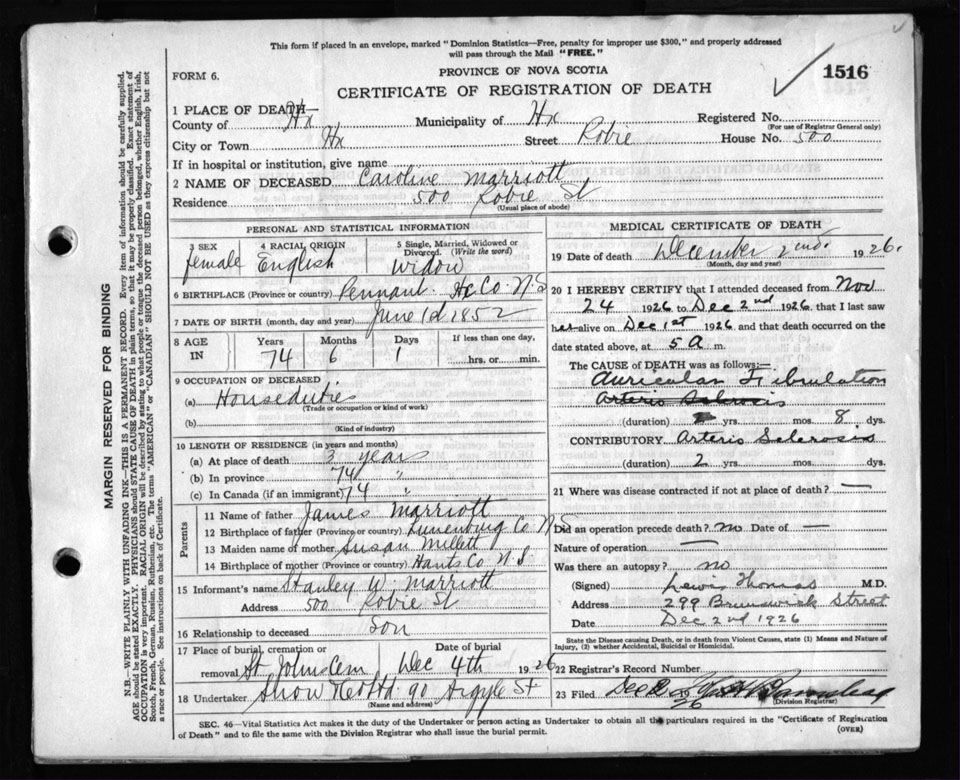 This form if placed in an envelope, marked "Dominion Statistics—Free, penalty for improper use $300," and properly addressed
will pass through the Mail "FREE."
FORM 6.
PROVINCE OF NOVA SCOTIA
1516
CERTIFICATE OF REGISTRATION OF DEATH
1 PLACE OF DEATH—
County of Hx Municipality of Hx Registered No.
(For use of Registrar General only)
City or Town Hx Street Robie House No. 500
If in hospital or institution, give name
2 NAME OF DECEASED Caroline Marriott
Residence 500 Robie St
(Usual place of abode)
PERSONAL AND STATISTICAL INFORMATION
3 SEX 4 RACIAL ORIGIN 5 Single, Married, Widowed or Divorced. (Write the word)
female English Widow
6 BIRTHPLACE (Province or country) Pennant Hx Co N.S
7 DATE OF BIRTH (month, day and year) June 1st 1852
8 AGE IN Years Months Days If less than one day,
74 6 1 hrs. or min.
9 OCCUPATION OF DECEASED
(a) Houseduties
(Trade or occupation or kind of work)
(b)
(Kind of industry)
10 LENGTH OF RESIDENCE (in years and months)
(a) At place of death 3 years
(b) In province 74 "
(c) In Canada (if an immigrant) 74 "
Parents
11 Name of father James Marriott
12 Birthplace of father (Province or country) Lunenburg Co N.S
13 Maiden name of mother Susan Millett
14 Birthplace of mother (Province or country) Hants Co N.S.
15 Informant's name Stanley W. Marriott
Address 500 Robie St
16 Relationship to deceased Son
17 Place of burial, cremation or removal Date of burial
St Johns Cem Dec 4th 1926
18 Undertaker Snow &Co Ltd 90 Argyle St
(Name and address)
MEDICAL CERTIFICATE OF DEATH
19 Date of death December 2nd. 1926.
(Month, day and year)
20 I HEREBY CERTIFY that I attended deceased from Nov
24 1926 to Dec 2nd 1926, that I last saw
her alive on Dec 1st 1926, and that death occurred on the
date stated above, at 5 A m.
The CAUSE OF DEATH was as follows:—
Auricular Fibrulation
Arterio Sclerosis
(duration) yrs. mos. 8 dys.
CONTRIBUTORY Arterio Sclerosis
(duration) 2 yrs. mos. dys.
21 Where was disease contracted if not at place of death? —
Did an operation precede death? no Date of —
Nature of operation —
Was there an autopsy? no
(Signed) Lewis Thomas M.D.
Address 299 Brunswick Street
Date Dec 2nd 1926
State the Disease causing Death, or in death from Violent Causes, state (1) Means and Nature of
Injury, (2) whether Accidental, Suicidal or Homicidal.
22 Registrar's Record Number
23 Filed Dec 2 1926
(Division Registrar)
SEC. 46—Vital Statistics Act makes it the duty of the Undertaker or person acting as Undertaker to obtain all the particulars required in the "Certificate of Registration
of Death" and to file the same with the Division Registrar who shall issue the burial permit.
(OVER)
MARGIN RESERVED FOR BINDING
N.B.—WRITE PLAINLY WITH UNFADING INK—THIS IS A PERMANENT RECORD. Every item of information should be carefully supplied.
AGE should be stated EXACTLY. PHYSICIANS should STATE CAUSE OF DEATH in plain terms, so that it may be properly classified. Exact statement of
OCCUPATION is very important. RACIAL ORIGIN will be described by stating to what people or tongue the deceased person belonged, whether English, Irish,
Scotch, French, German, Russian, Ruthenian, etc. The terms "AMERICAN" or "CANADIAN" SHOULD NOT BE USED as they express citizenship but not
a race or people. See instructions on back of Certificate.